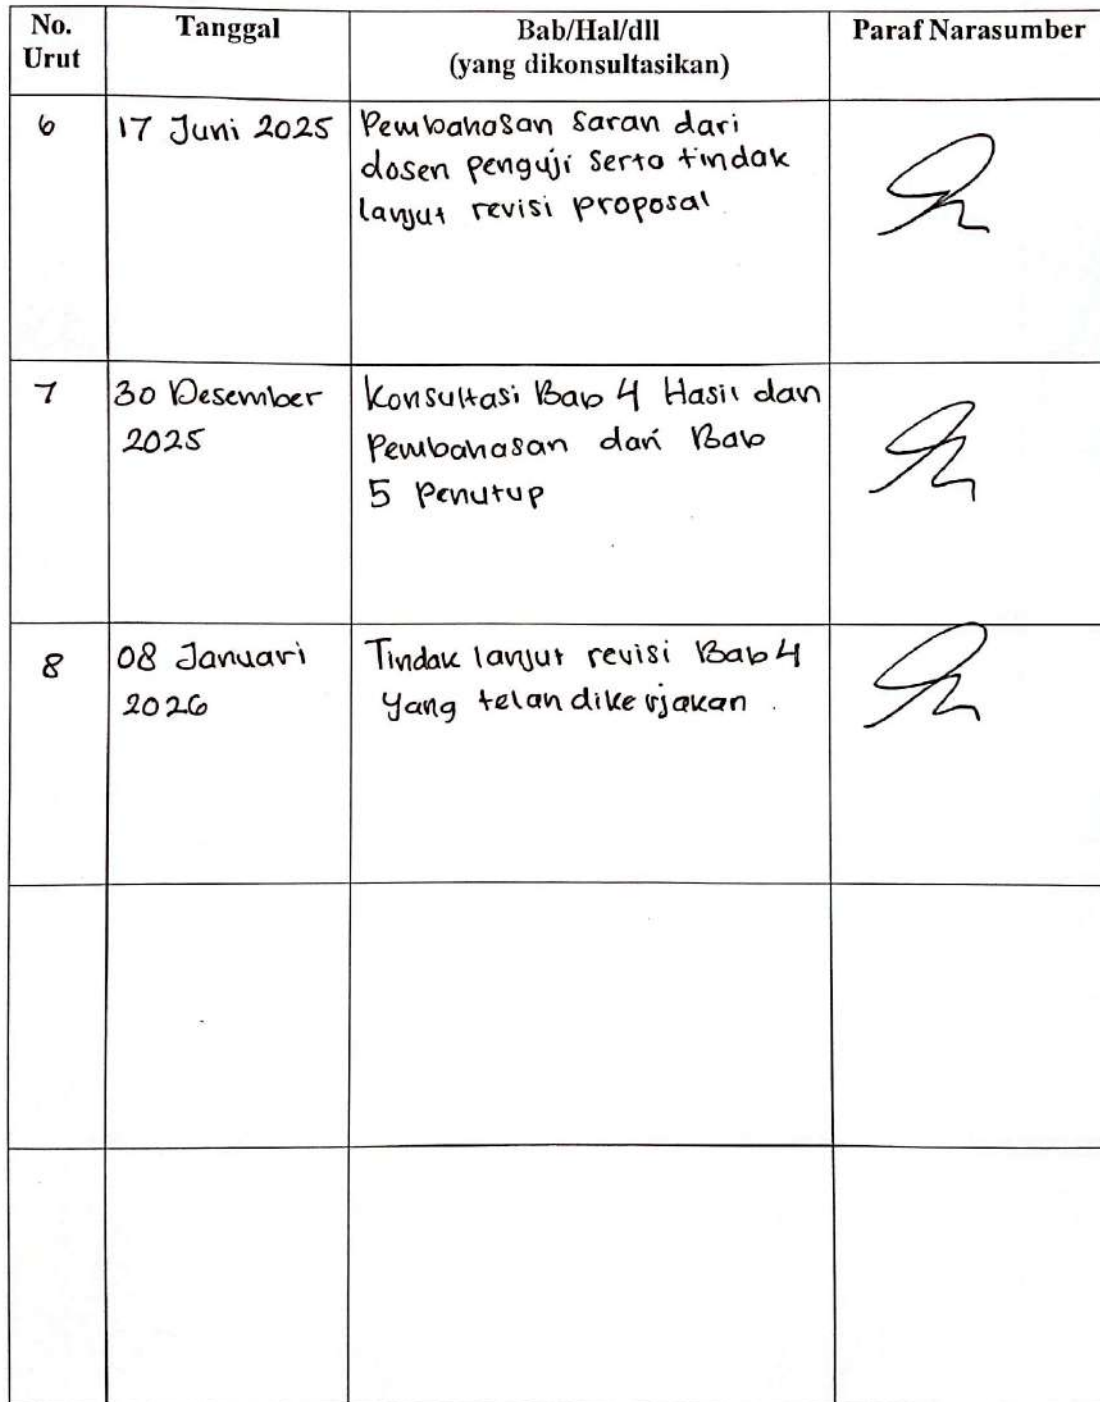 No. Urut Tanggal Bab/Hal/dll Paraf Narasumber
(yang dikonsultasikan)
6 17 Juni 2025 Pembahasan saran dari
dosen penguji serta tindak
lanjut revisi proposal
7 30 Desember Konsultasi Bab 4 Hasil dan
2025 Pembahasan dan Bab
5 Penutup
8 08 Januari Tindak lanjut revisi Bab 4
2026 yang telah dikerjakan.